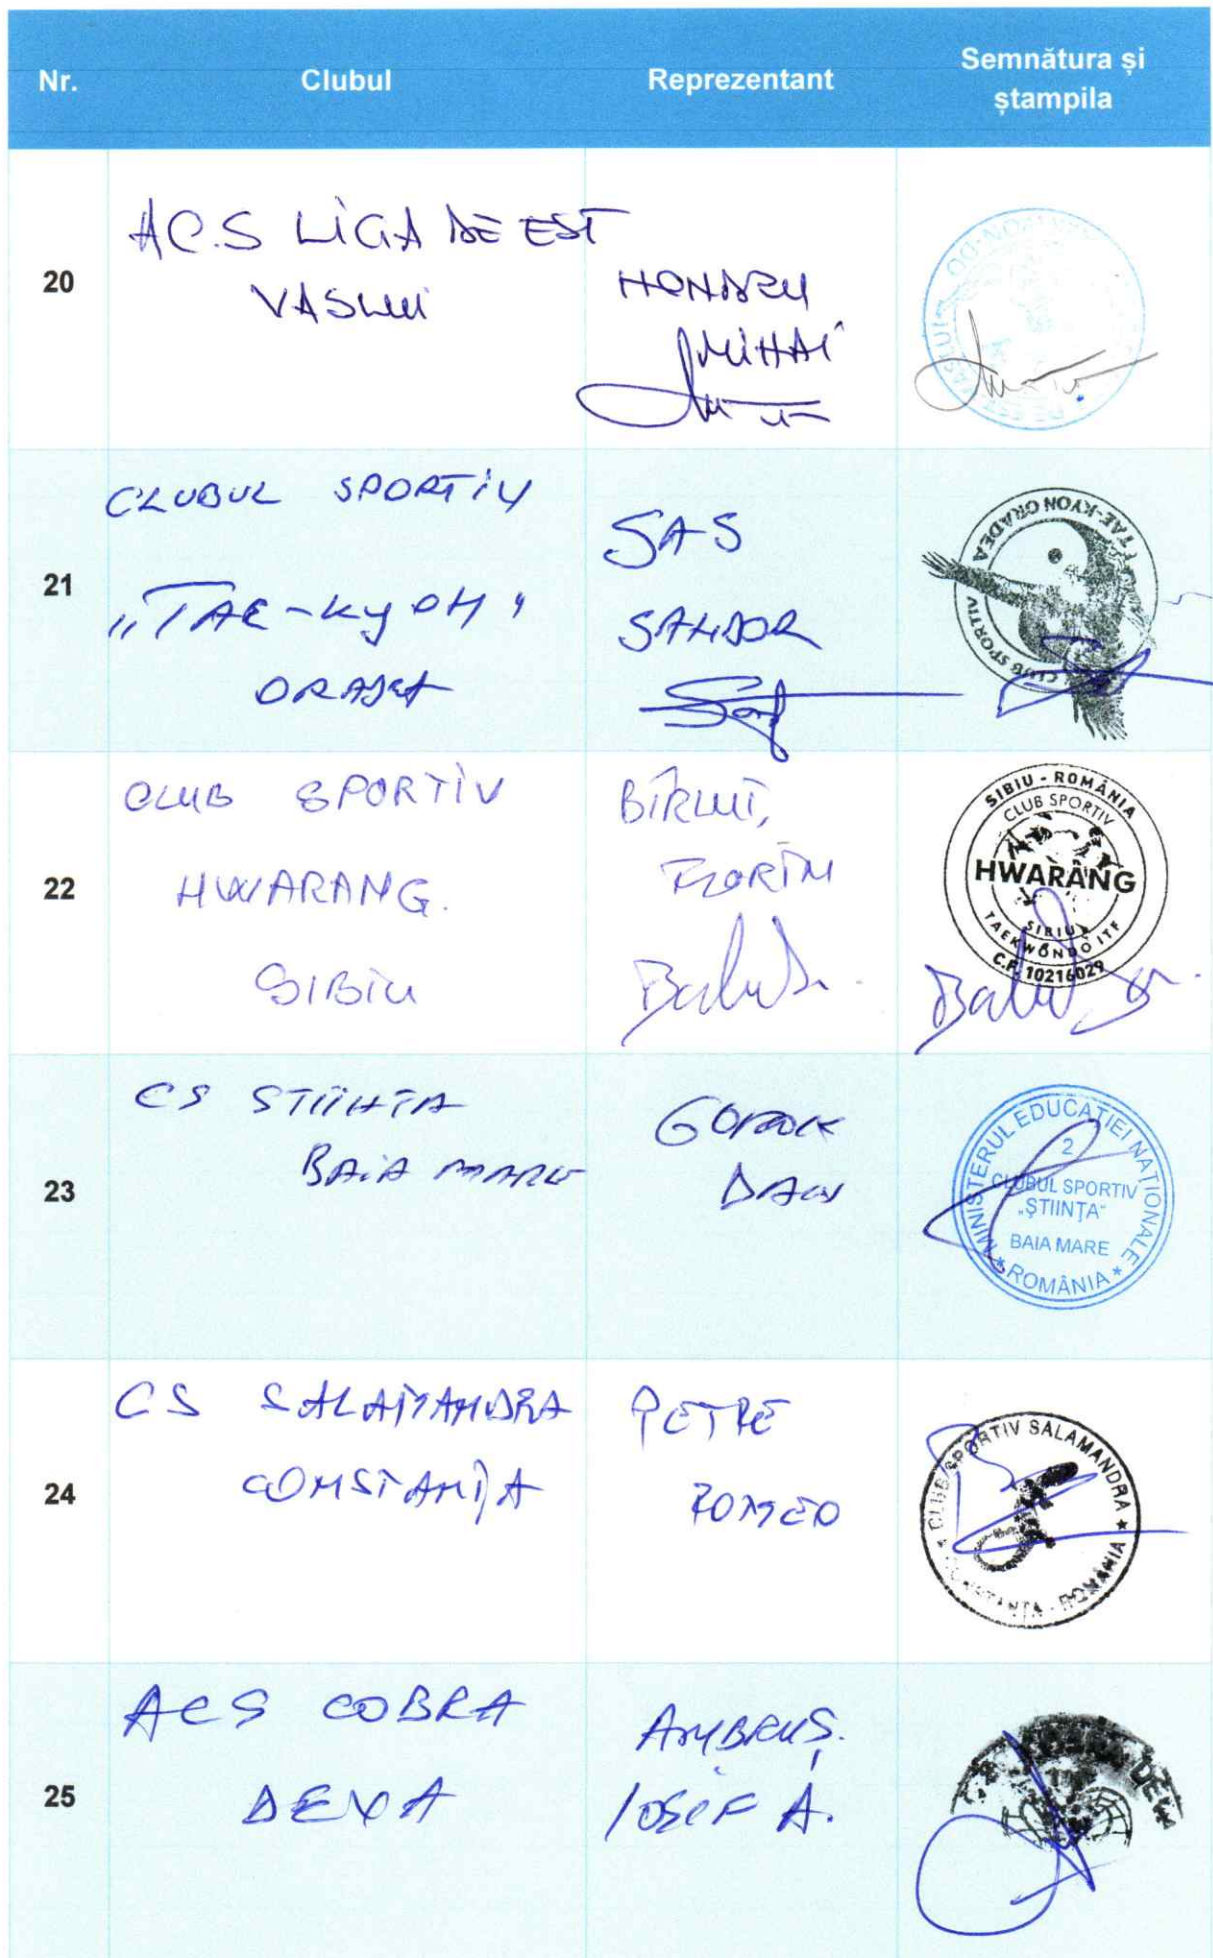 Nr. Clubul Reprezentant Semnătura și
ștampila
20
A.C.S LIGA DE EST
VASLUI
HONDRU
MIHAI
VASLUI
21
CLUBUL SPORTIV
„TAE-KYON"
ORADEA
SAS
SANDOR
CLUB SPORTIV TAE-KYON ORADEA
22
CLUB SPORTIV
HWARANG.
SIBIU
BÎRLUȚ,
FLORIN
SIBIU - ROMÂNIA
CLUB SPORTIV
HWARANG
SIBIU
TAEKWONDO ITF
C.F. 10216029
23
CS STIINTA
BAIA MARE
DAN
MINISTERUL EDUCAȚIEI NAȚIONALE
2
CLUBUL SPORTIV
„ȘTIINȚA"
BAIA MARE
* ROMÂNIA *
24
CS SALAMANDRA
CONSTANȚA
PETRE
ROMEO
* CLUB SPORTIV SALAMANDRA *
CONSTANȚA - ROMÂNIA
25
ACS COBRA
DEVA
AMBRUȘ.
IOSIF A.